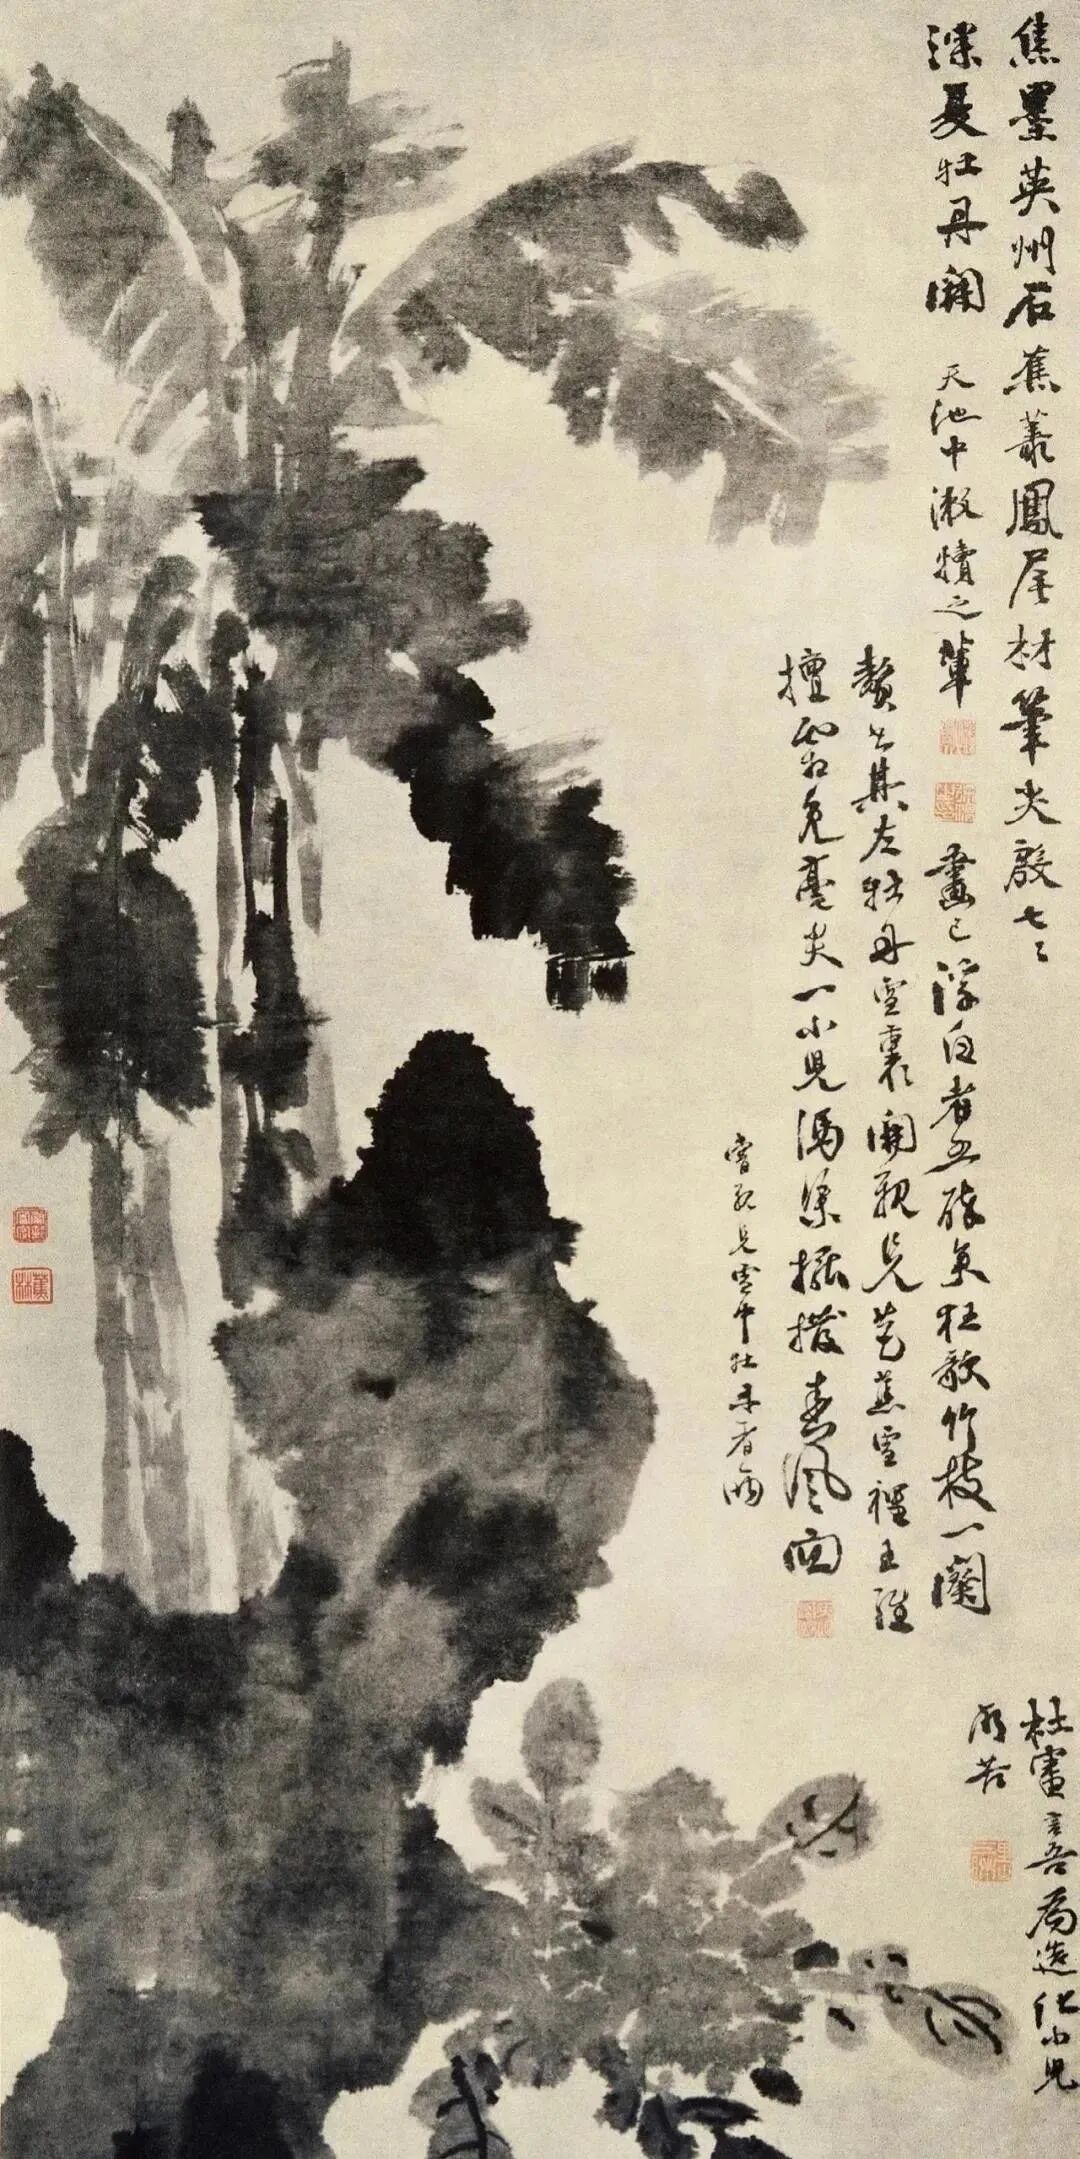 焦墨英州石蕉叢鳳尾材筆尖殷七々
深夏牡丹開 天池中漱犢之輩
畫已浮白者五醉矣狂歌竹枝一闋
贅書其左牡丹雪裏開親見芭蕉雪裡王維
擅霜兔毫尖一小兒馮渠擺撥春風面
嘗親見雪中牡丹者兩
杜審言吾為造化小兒
所苦
蕉林